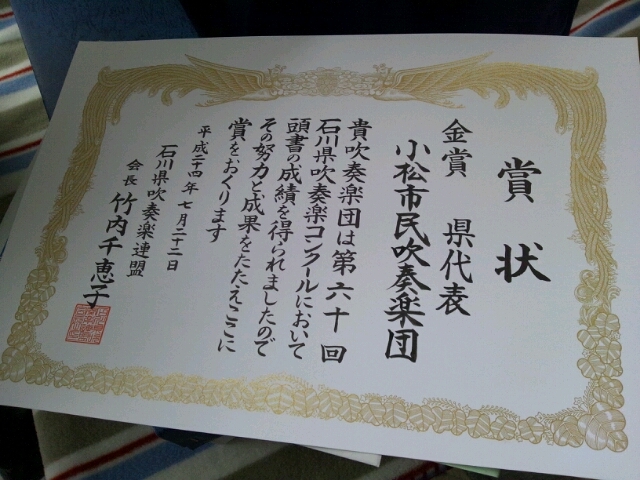 賞状
金賞 県代表
小松市民吹奏楽団
貴吹奏楽団は第六十回
石川県吹奏楽コンクールにおいて
頭書の成績を得られましたので
その努力と成果をたたえここに
賞をおくります
平成二十四年七月二十二日
石川県吹奏楽連盟
会長 竹内千恵子